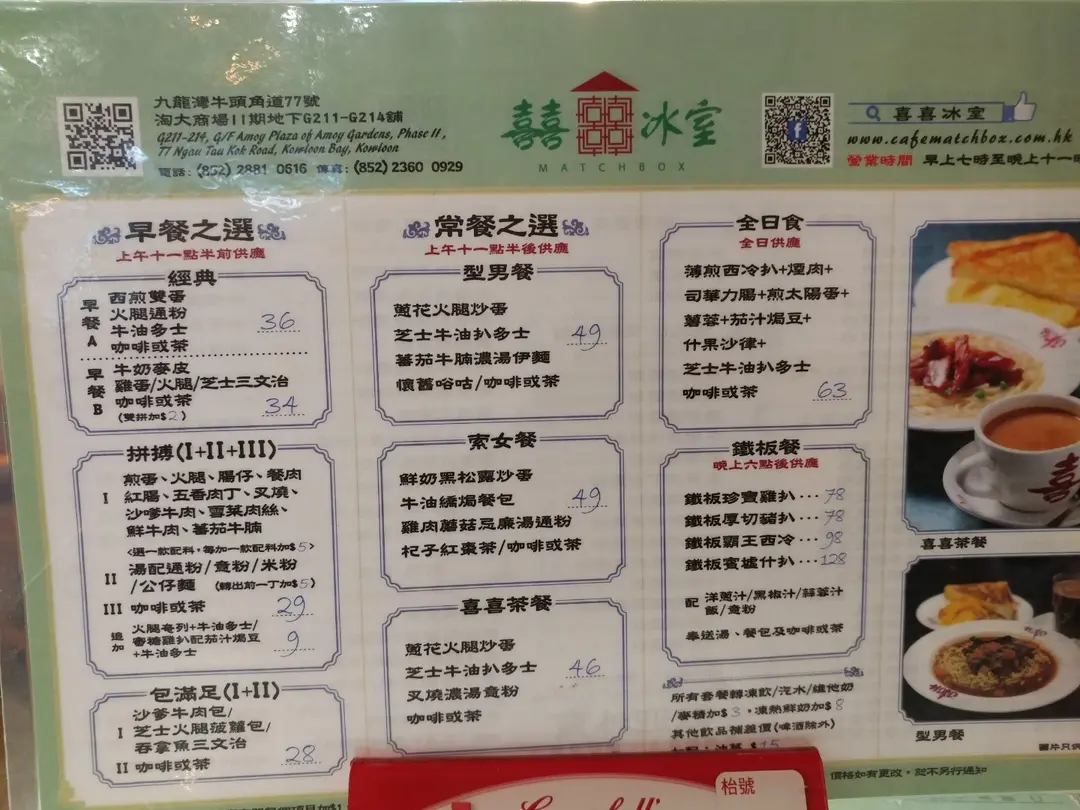 九龍灣牛頭角道77號
淘大商場II期地下G211-G214舖
G211-214, G/F Amoy Plaza of Amoy Gardens, Phase II,
77 Ngau Tau Kok Road, Kowloon Bay, Kowloon
電話: (852) 2881 0616 傳真: (852) 2360 0929
囍囍冰室
MATCHBOX
喜喜冰室
www.cafematchbox.com.hk
營業時間 早上七時至晚上十一時
早餐之選
上午十一點半前供應
經典
早餐A
西煎雙蛋
火腿通粉
牛油多士
咖啡或茶 36
早餐B
牛奶麥皮
雞蛋/火腿/芝士三文治
咖啡或茶 34
(雙拼加$2)
拼搏(I+II+III)
I 煎蛋、火腿、腸仔、餐肉
紅腸、五香肉丁、叉燒、
沙嗲牛肉、雪菜肉絲、
鮮牛肉、蕃茄牛腩
<選一款配料,每加一款配料加$5>
II 湯配通粉/意粉/米粉
/公仔麵 (轉出前一丁加$5)
III 咖啡或茶 29
追加 火腿奄列+牛油多士/
蜜糖雞扒配茄汁焗豆
+牛油多士 9
包滿足(I+II)
I 沙爹牛肉包/
芝士火腿菠蘿包/
吞拿魚三文治
II 咖啡或茶 28
常餐之選
上午十一點半後供應
型男餐
蔥花火腿炒蛋
芝士牛油扒多士 49
蕃茄牛腩濃湯伊麵
懷舊唂咕/咖啡或茶
索女餐
鮮奶黑松露炒蛋
牛油焗餐包 49
雞肉蘑菇忌廉湯通粉
杞子紅棗茶/咖啡或茶
喜喜茶餐
蔥花火腿炒蛋
芝士牛油扒多士 46
叉燒濃湯意粉
咖啡或茶
全日食
全日供應
薄煎西冷扒+煙肉+
司華力腸+煎太陽蛋+
薯蓉+茄汁焗豆+
什果沙律+
芝士牛油扒多士
咖啡或茶 63
鐵板餐
晚上六點後供應
鐵板珍寶雞扒···78
鐵板厚切豬扒···78
鐵板霸王西冷···98
鐵板賓墟什扒···128
配 洋蔥汁/黑椒汁/蒜蓉汁
飯/意粉
奉送湯、餐包及咖啡或茶
所有套餐轉凍飲/汽水/維他奶
/麥精加$3,凍熱鮮奶加$8
其他飲品補差價(啤酒除外)
喜喜茶餐
型男餐
圖片只供
價格如有更改,恕不另行通知
枱號